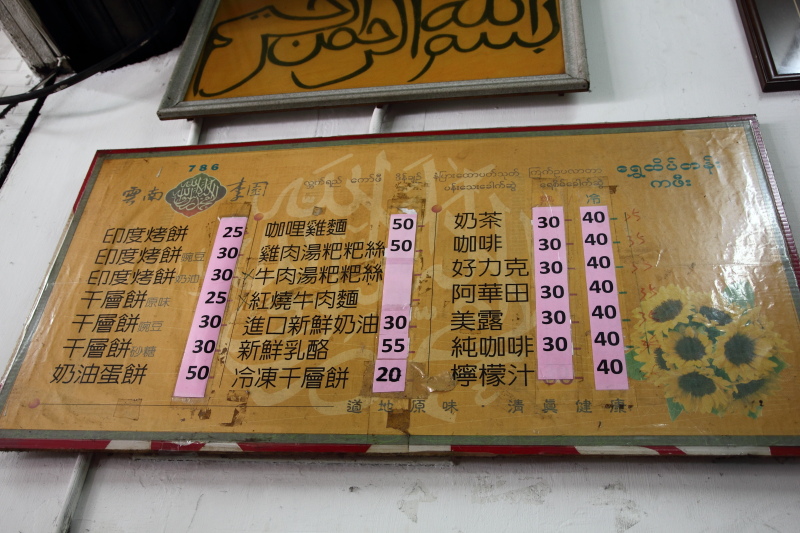 بسم الله الرحمن الرحيم
786
雲南 李園
ရွှေထိပ်တန်း
ကဖီး
印度烤餅 25
印度烤餅豌豆 30
印度烤餅奶油 30
千層餅原味 25
千層餅豌豆 30
千層餅砂糖 30
奶油蛋餅 50
咖哩雞麵 50
雞肉湯粑粑絲 50
牛肉湯粑粑絲
紅燒牛肉麵
進口新鮮奶油 30
新鮮乳酪 55
冷凍千層餅 20
冷
奶茶 30 40
咖啡 30 40
好力克 30 40
阿華田 30 40
美露 30 40
純咖啡 30 40
檸檬汁 40
道地原味・清真健康